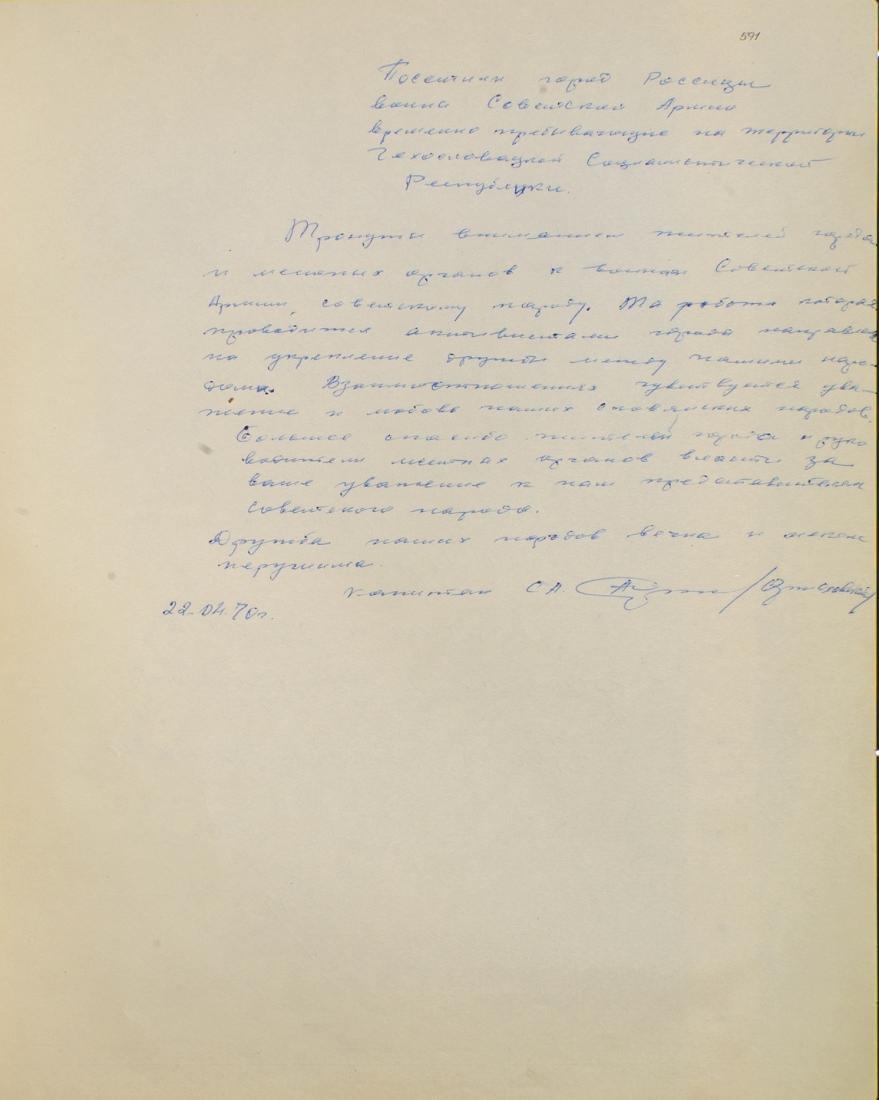 591
Посетили город Россицы
воины Советской Армии
временно пребывающие на территории
Чехословацкой Социалистической
Республики.
Тронуты вниманием жителей города
и местных органов к воинам Советской
Армии, советскому народу. Та работа которая
проводится активистами города направлена
на укрепление дружбы между нашими наро-
дами. Взаимоотношениях чувствуется ува-
жение и любовь наших славянских народов.
Большое спасибо жителей города и руко
водители местных органов власти за
ваше уважение к нам представителям
Советского народа.
Дружба наших народов вечна и
нерушима.
Капитан С.А.
22.04.70г.